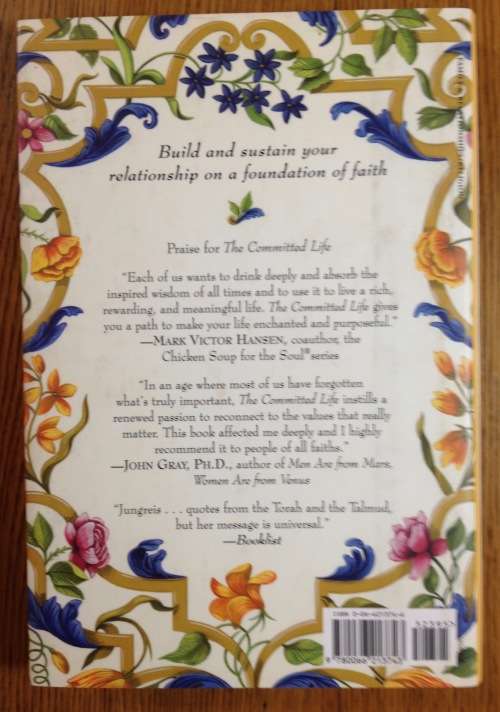 Build and sustain your
relationship on a foundation of faith
Praise for The Committed Life
“Each of us wants to drink deeply and absorb the
inspired wisdom of all times and to use it to live a rich,
rewarding, and meaningful life. The Committed Life gives
you a path to make your life enchanted and purposeful.”
—MARK VICTOR HANSEN, coauthor, the
Chicken Soup for the Soul® series
“In an age where most of us have forgotten
what’s truly important, The Committed Life instills a
renewed passion to reconnect to the values that really
matter. This book affected me deeply and I highly
recommend it to people of all faiths.”
—JOHN GRAY, PH.D., author of Men Are from Mars,
Women Are from Venus
“Jungreis . . . quotes from the Torah and the Talmud,
but her message is universal.”
—Booklist
ISBN